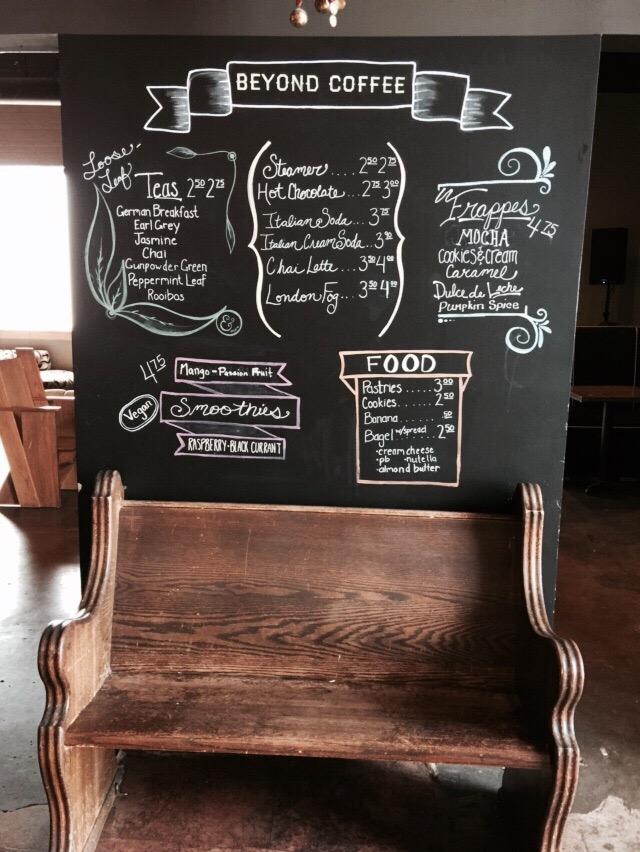 BEYOND COFFEE
Loose-
Leaf
Teas 2⁵⁰ 2⁷⁵
German Breakfast
Earl Grey
Jasmine
Chai
Gunpowder Green
Peppermint Leaf
Rooibos
&
Steamer.... 2⁵⁰ 2⁷⁵
Hot Chocolate... 2⁷⁵ 3⁰⁰
Italian Soda... 3⁷⁵
Italian Cream Soda..3⁹⁰
Chai Latte... 3⁵⁰ 4⁰⁰
London Fog... 3⁵⁰ 4⁰⁰
Frappes 4⁷⁵
MOCHA
Cookies & Cream
Caramel
Dulce de Leche
Pumpkin Spice
4⁷⁵
Mango-Passion Fruit
Vegan
Smoothies
RASPBERRY-BLACK CURRANT
FOOD
Pastries......3⁰⁰
Cookies......2⁵⁰
Banana........⁵⁰
Bagel w/spread..2⁵⁰
-cream cheese
-pb -nutella
-almond butter